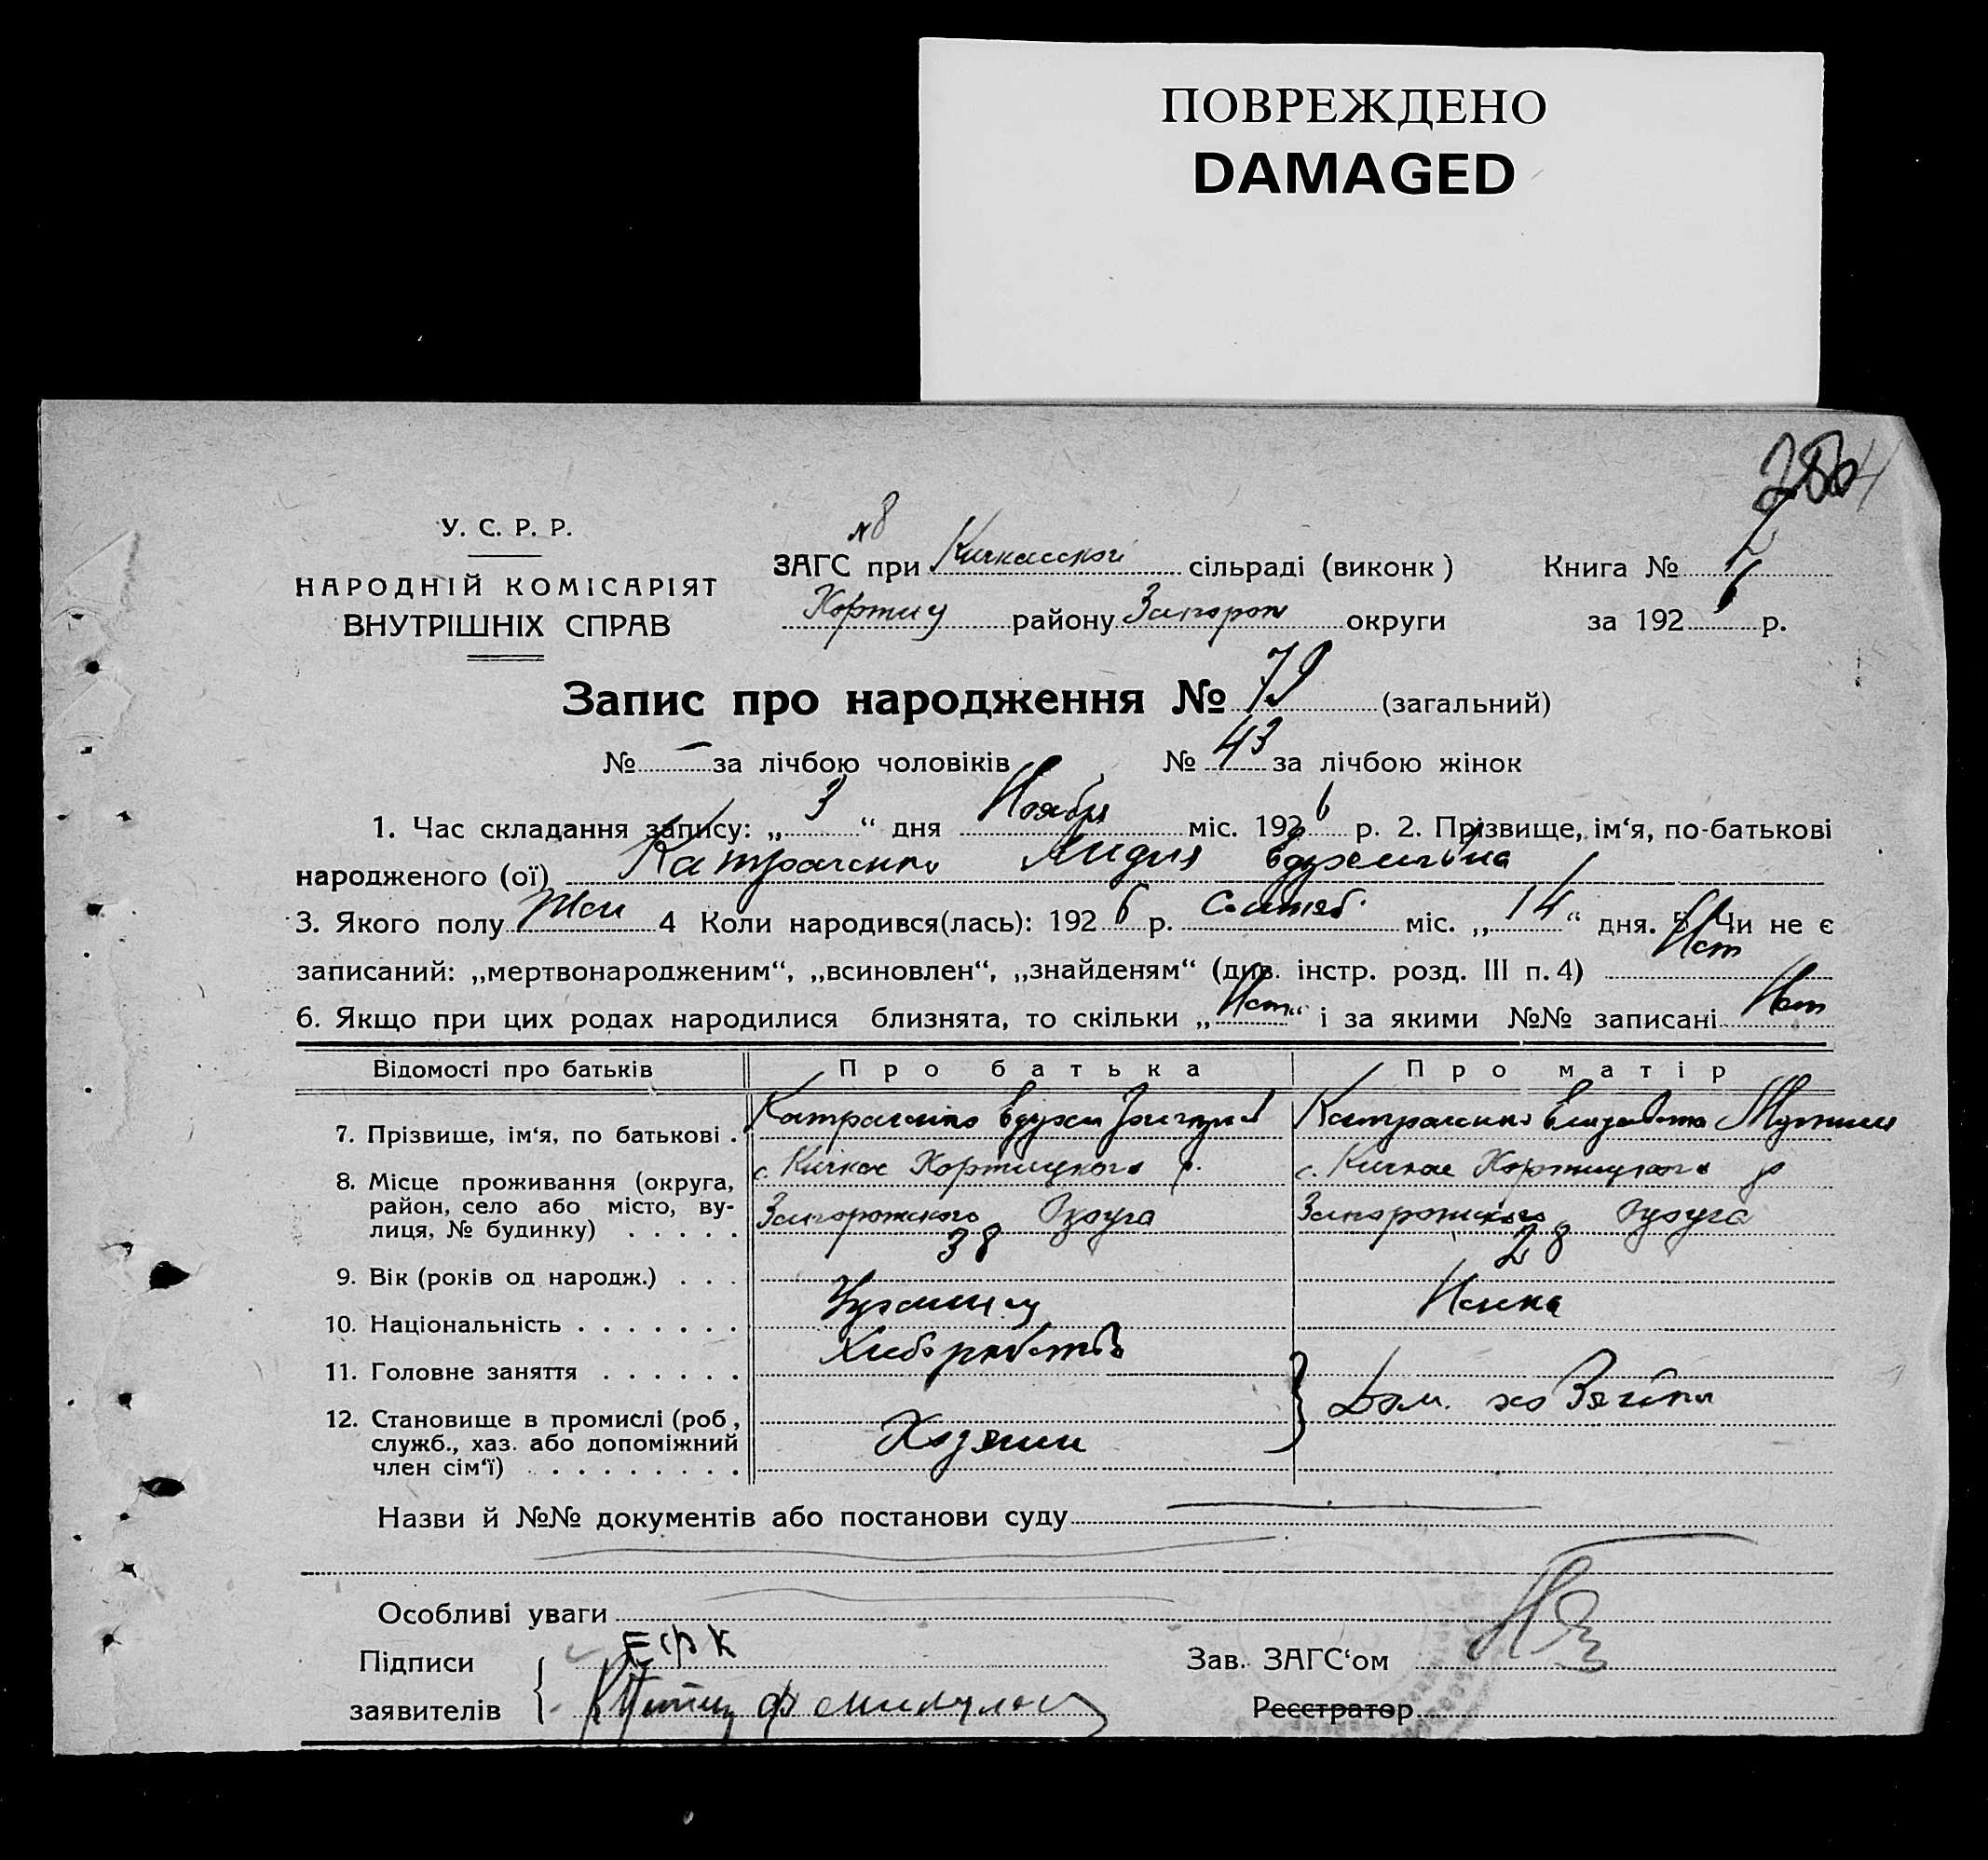 ПОВРЕЖДЕНО
DAMAGED
У. С. Р. Р.
НАРОДНІЙ КОМІСАРІЯТ
ВНУТРІШНІХ СПРАВ
№ 8
ЗАГС при Кичкасской сільраді (виконк)
Хортиц району Запорож округи
Книга №
за 192 6 р.
Запис про народження № 79 (загальний)
№ — за лічбою чоловіків № 43 за лічбою жінок
1. Час складання запису: „ 3 “ дня Ноября міс. 192 6 р. 2. Прізвище, ім‘я, по-батькові
народженого (ої) Лидия
3. Якого полу Жен 4 Коли народився(лась): 192 6 р. Сентяб міс. „ 14 “ дня. 5. Чи не є
записаний: „мертвонародженим“, „всиновлен“, „знайденям“ (див. інстр. розд. III п. 4) Нет
6. Якщо при цих родах народилися близнята, то скільки „ Нет “ і за якими №№ записані Нет
Відомості про батьків Про батька Про матір
7. Прізвище, ім‘я, по батькові .
8. Місце проживання (округа,
район, село або місто, ву-
лиця, № будинку) . . . . .
с. Кичкас Хортицкого р.
Запорожского Округа
с. Кичкас Хортицкого р
Запорожского Округа
9. Вік (років од народж.) . . . 38 28
10. Національність . . . . . . . Украинец Немка
11. Головне заняття . . . . . . Хлеборобство
12. Становище в промислі (роб.,
служб., хаз. або допоміжний
член сім‘ї) . . . . . . . . .
Хозяин
Дом. хозяйка
Назви й №№ документів або постанови суду
Особливі уваги
Підписи
заявителів
ЕФК
Зав. ЗАГС‘ом
Реєстратор